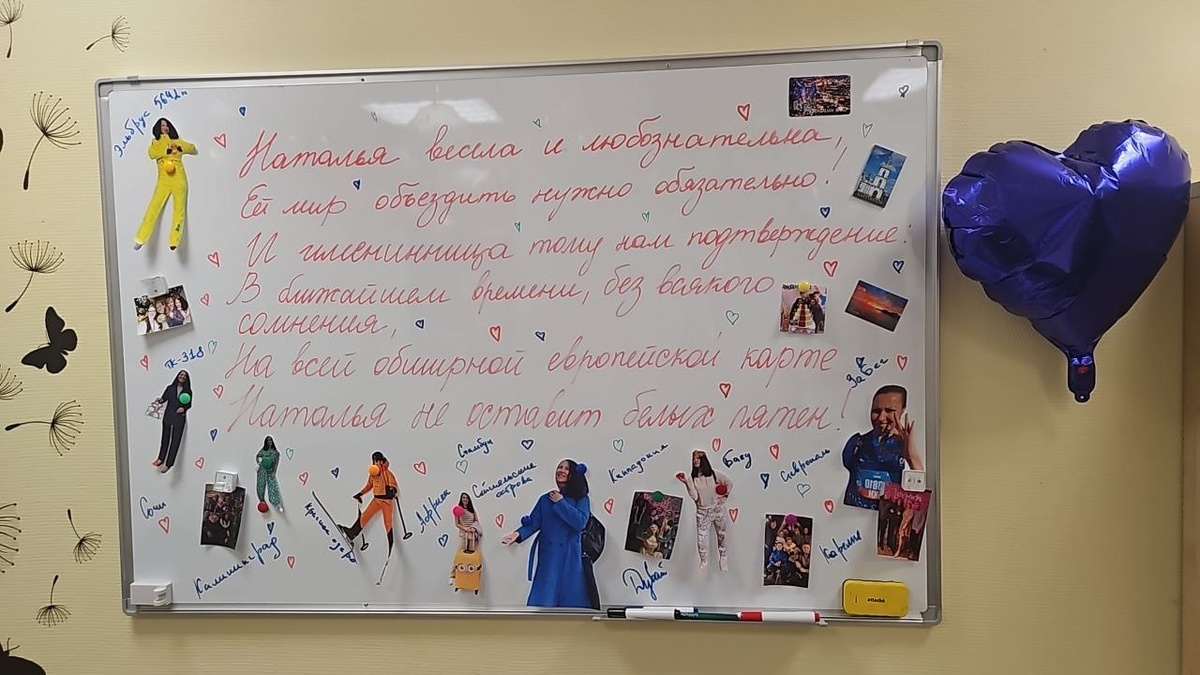 Эльбрус 5642м
Наталья весела и любознательна,
Ей мир объездить нужно обязательно!
И именинница тому нам подтверждение!
В ближайшем времени, без всякого
сомнения,
На всей обширной европейской карте
Наталья не оставит белых пятен!
ТК-318
Забег
Стамбул
Сейшельские
острова
Каппадокия
Баку
Ставрополь
Сочи
Калининград
Красная
Африка
Дубай
Карелия
attaché